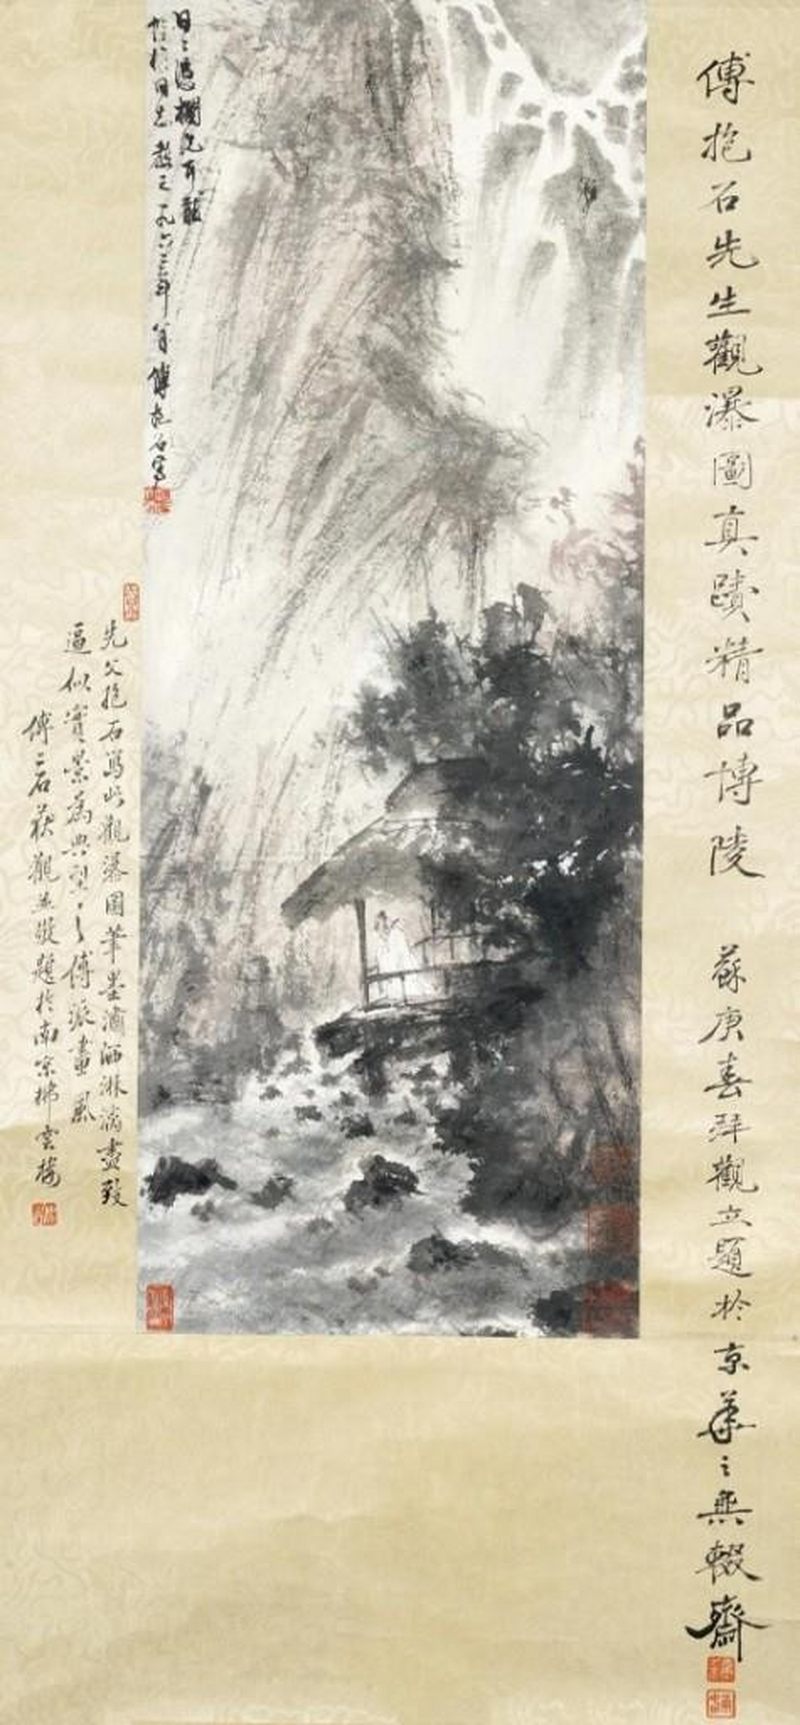 傅抱石先生觀瀑圖真蹟精品博陵
蘇庚春拜觀並題於京華之無輟齋
日日憑欄洗耳聾
同志教之一九六三年
傅抱石寫
先父抱石寫此觀瀑圖筆墨瀟洒淋漓盡致
逼似實景為典型之傅派畫風
傅二石获觀並敬題於南京拂雲樓